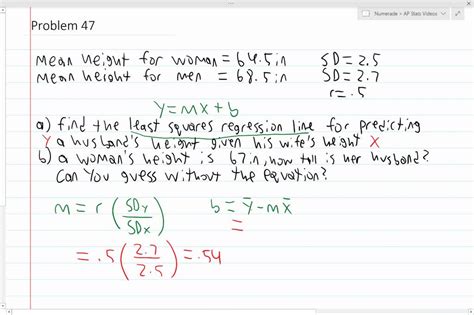 Numerade > AP Stats Videos
Problem 47
Mean height for woman = 64.5in SD = 2.5
Mean height for men = 68.5in SD = 2.7
r = .5
y = mx + b
a) find the least squares regression line for predicting
Y a husband's height given his wife's height X
b) a woman's height is 67in, how tall is her husband?
Can you guess without the equation?
m = r (SDy/SDx) b = ȳ - mx̄
= .5 (2.7/2.5) = .54 =